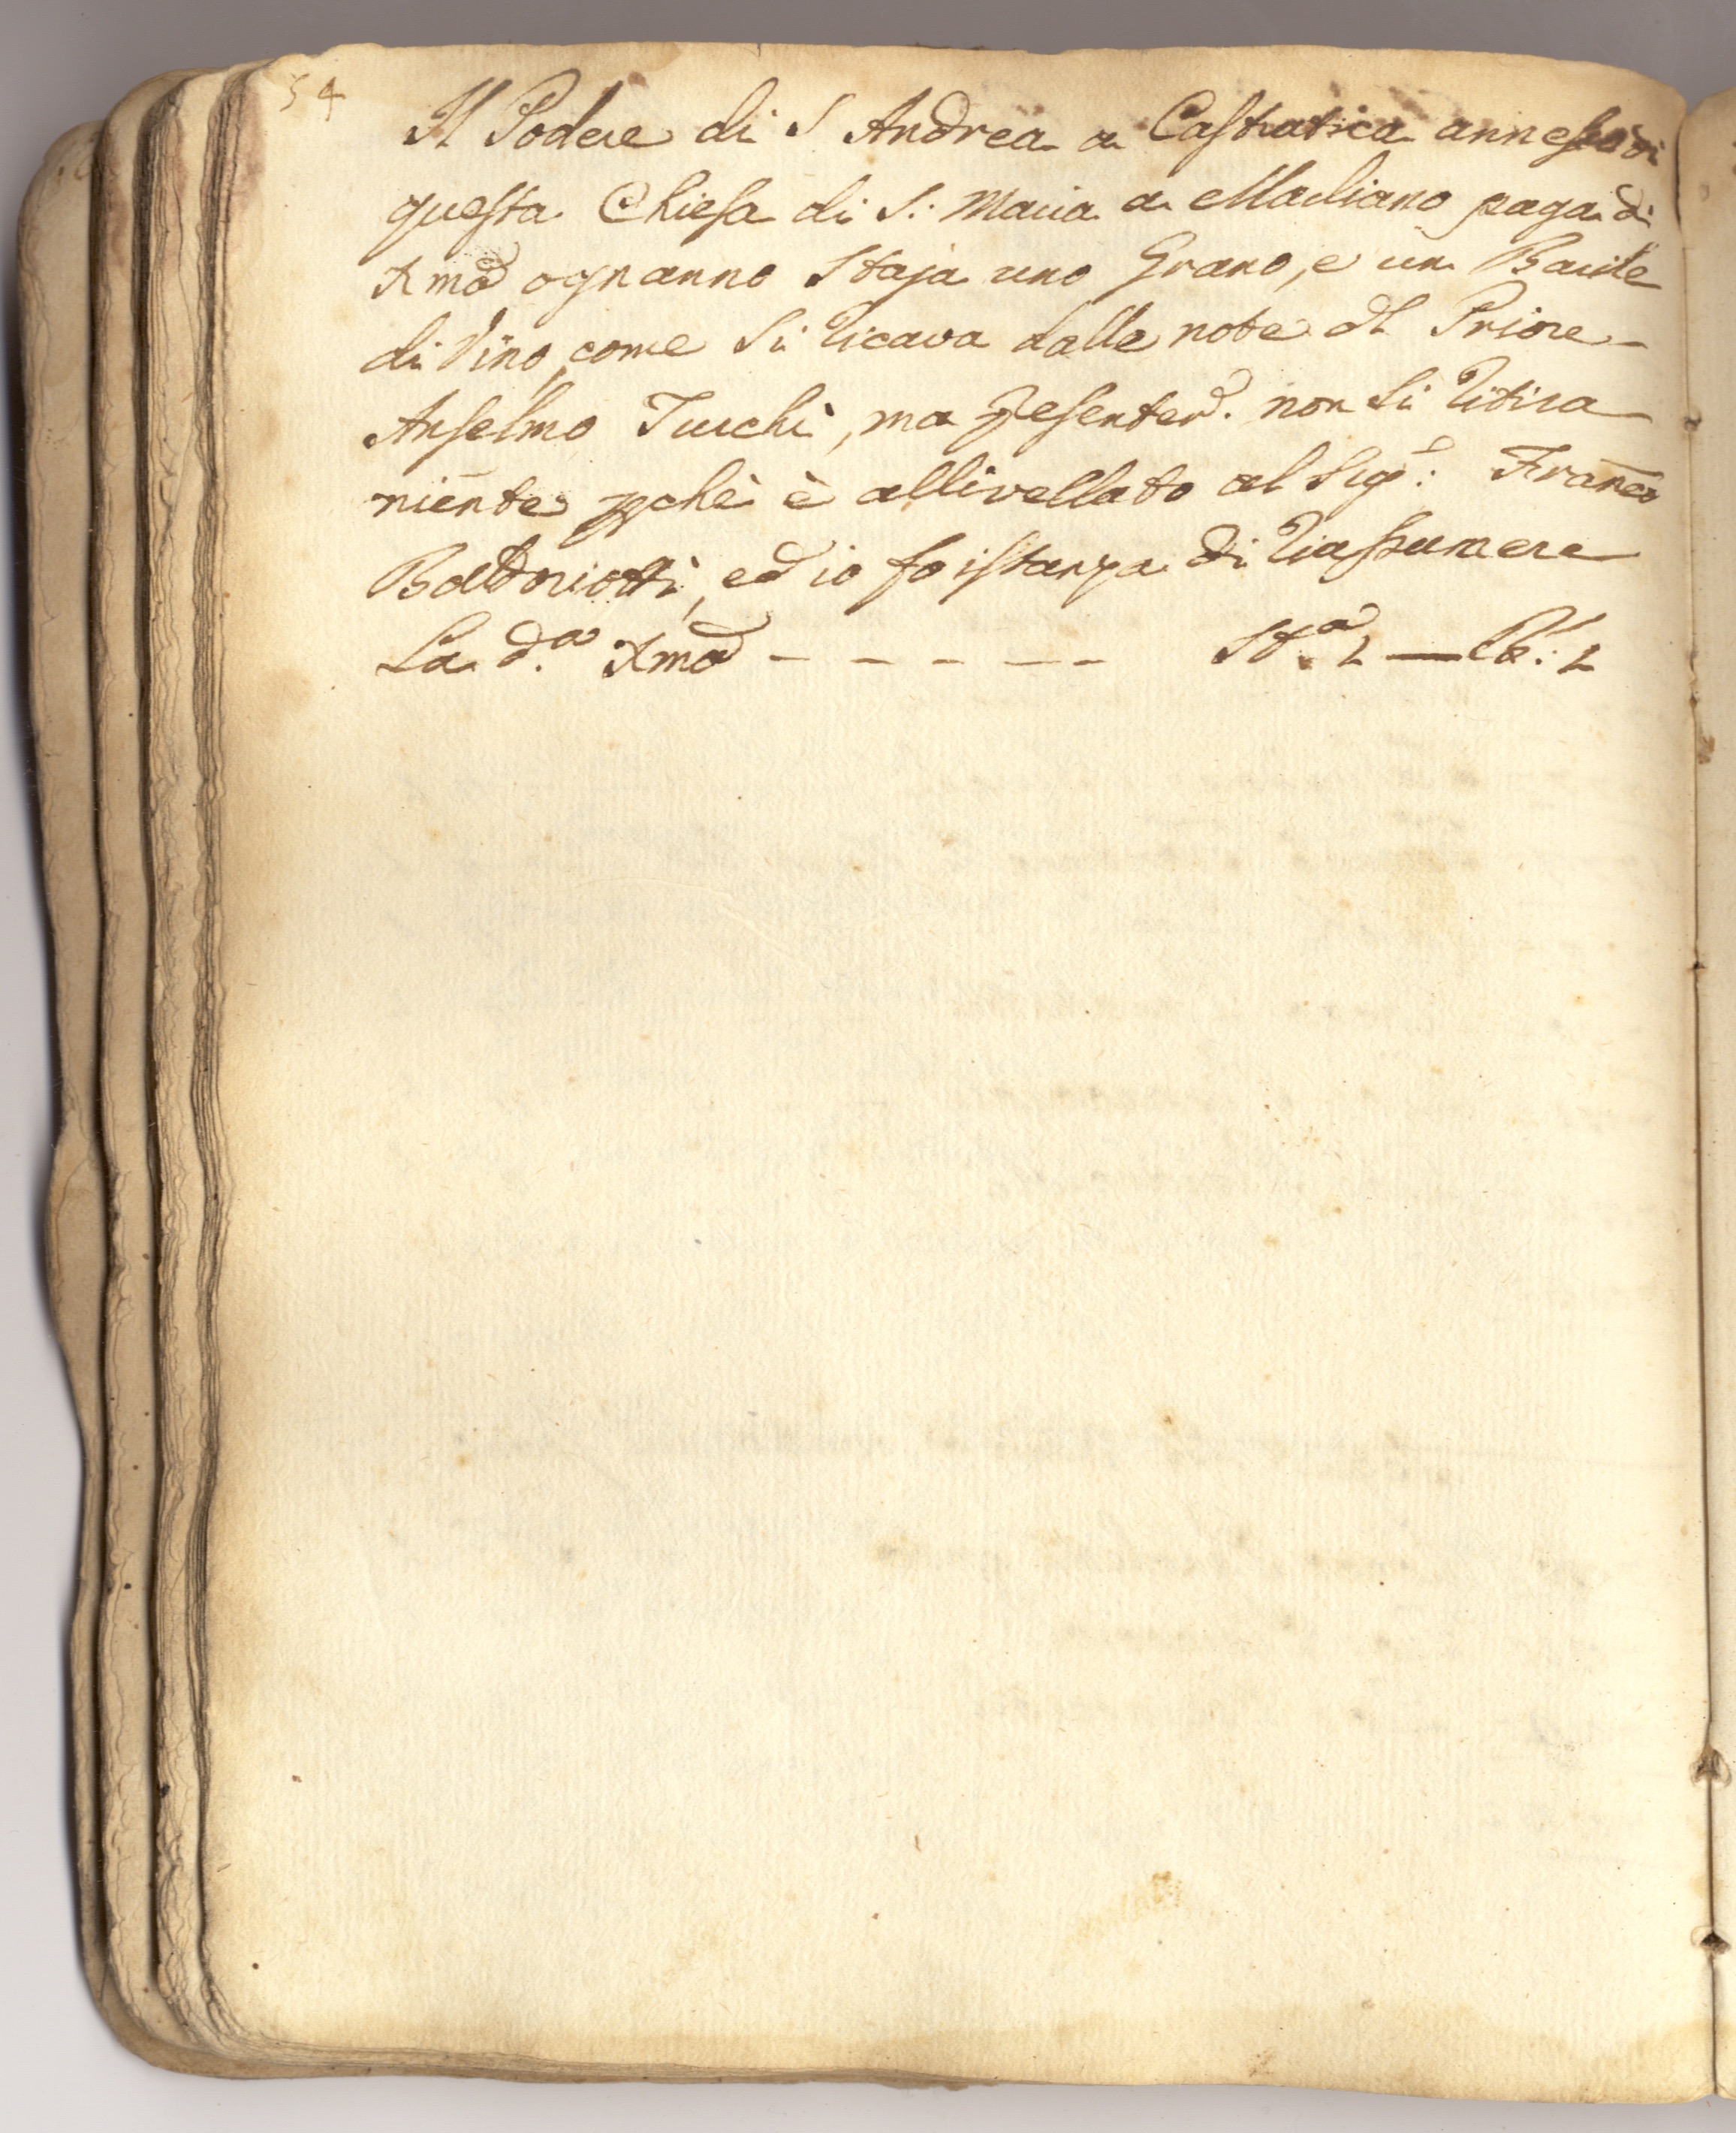 54
Il Podere di S Andrea a Castratica annesso di
questa Chiesa di S: Maria a Marliano paga di
Xma ogn anno Staja uno Grano, e un Barile
di Vino, come si ricava dalle note dl Priore
Anselmo Turchi, ma presentem. non si ritira
niente pchè è allivellato al Sigr: Franco
Baldoriotti, ed io fo istanza di riassumere
La d.a Xma - - - - - - St.a 1 — Be: 1